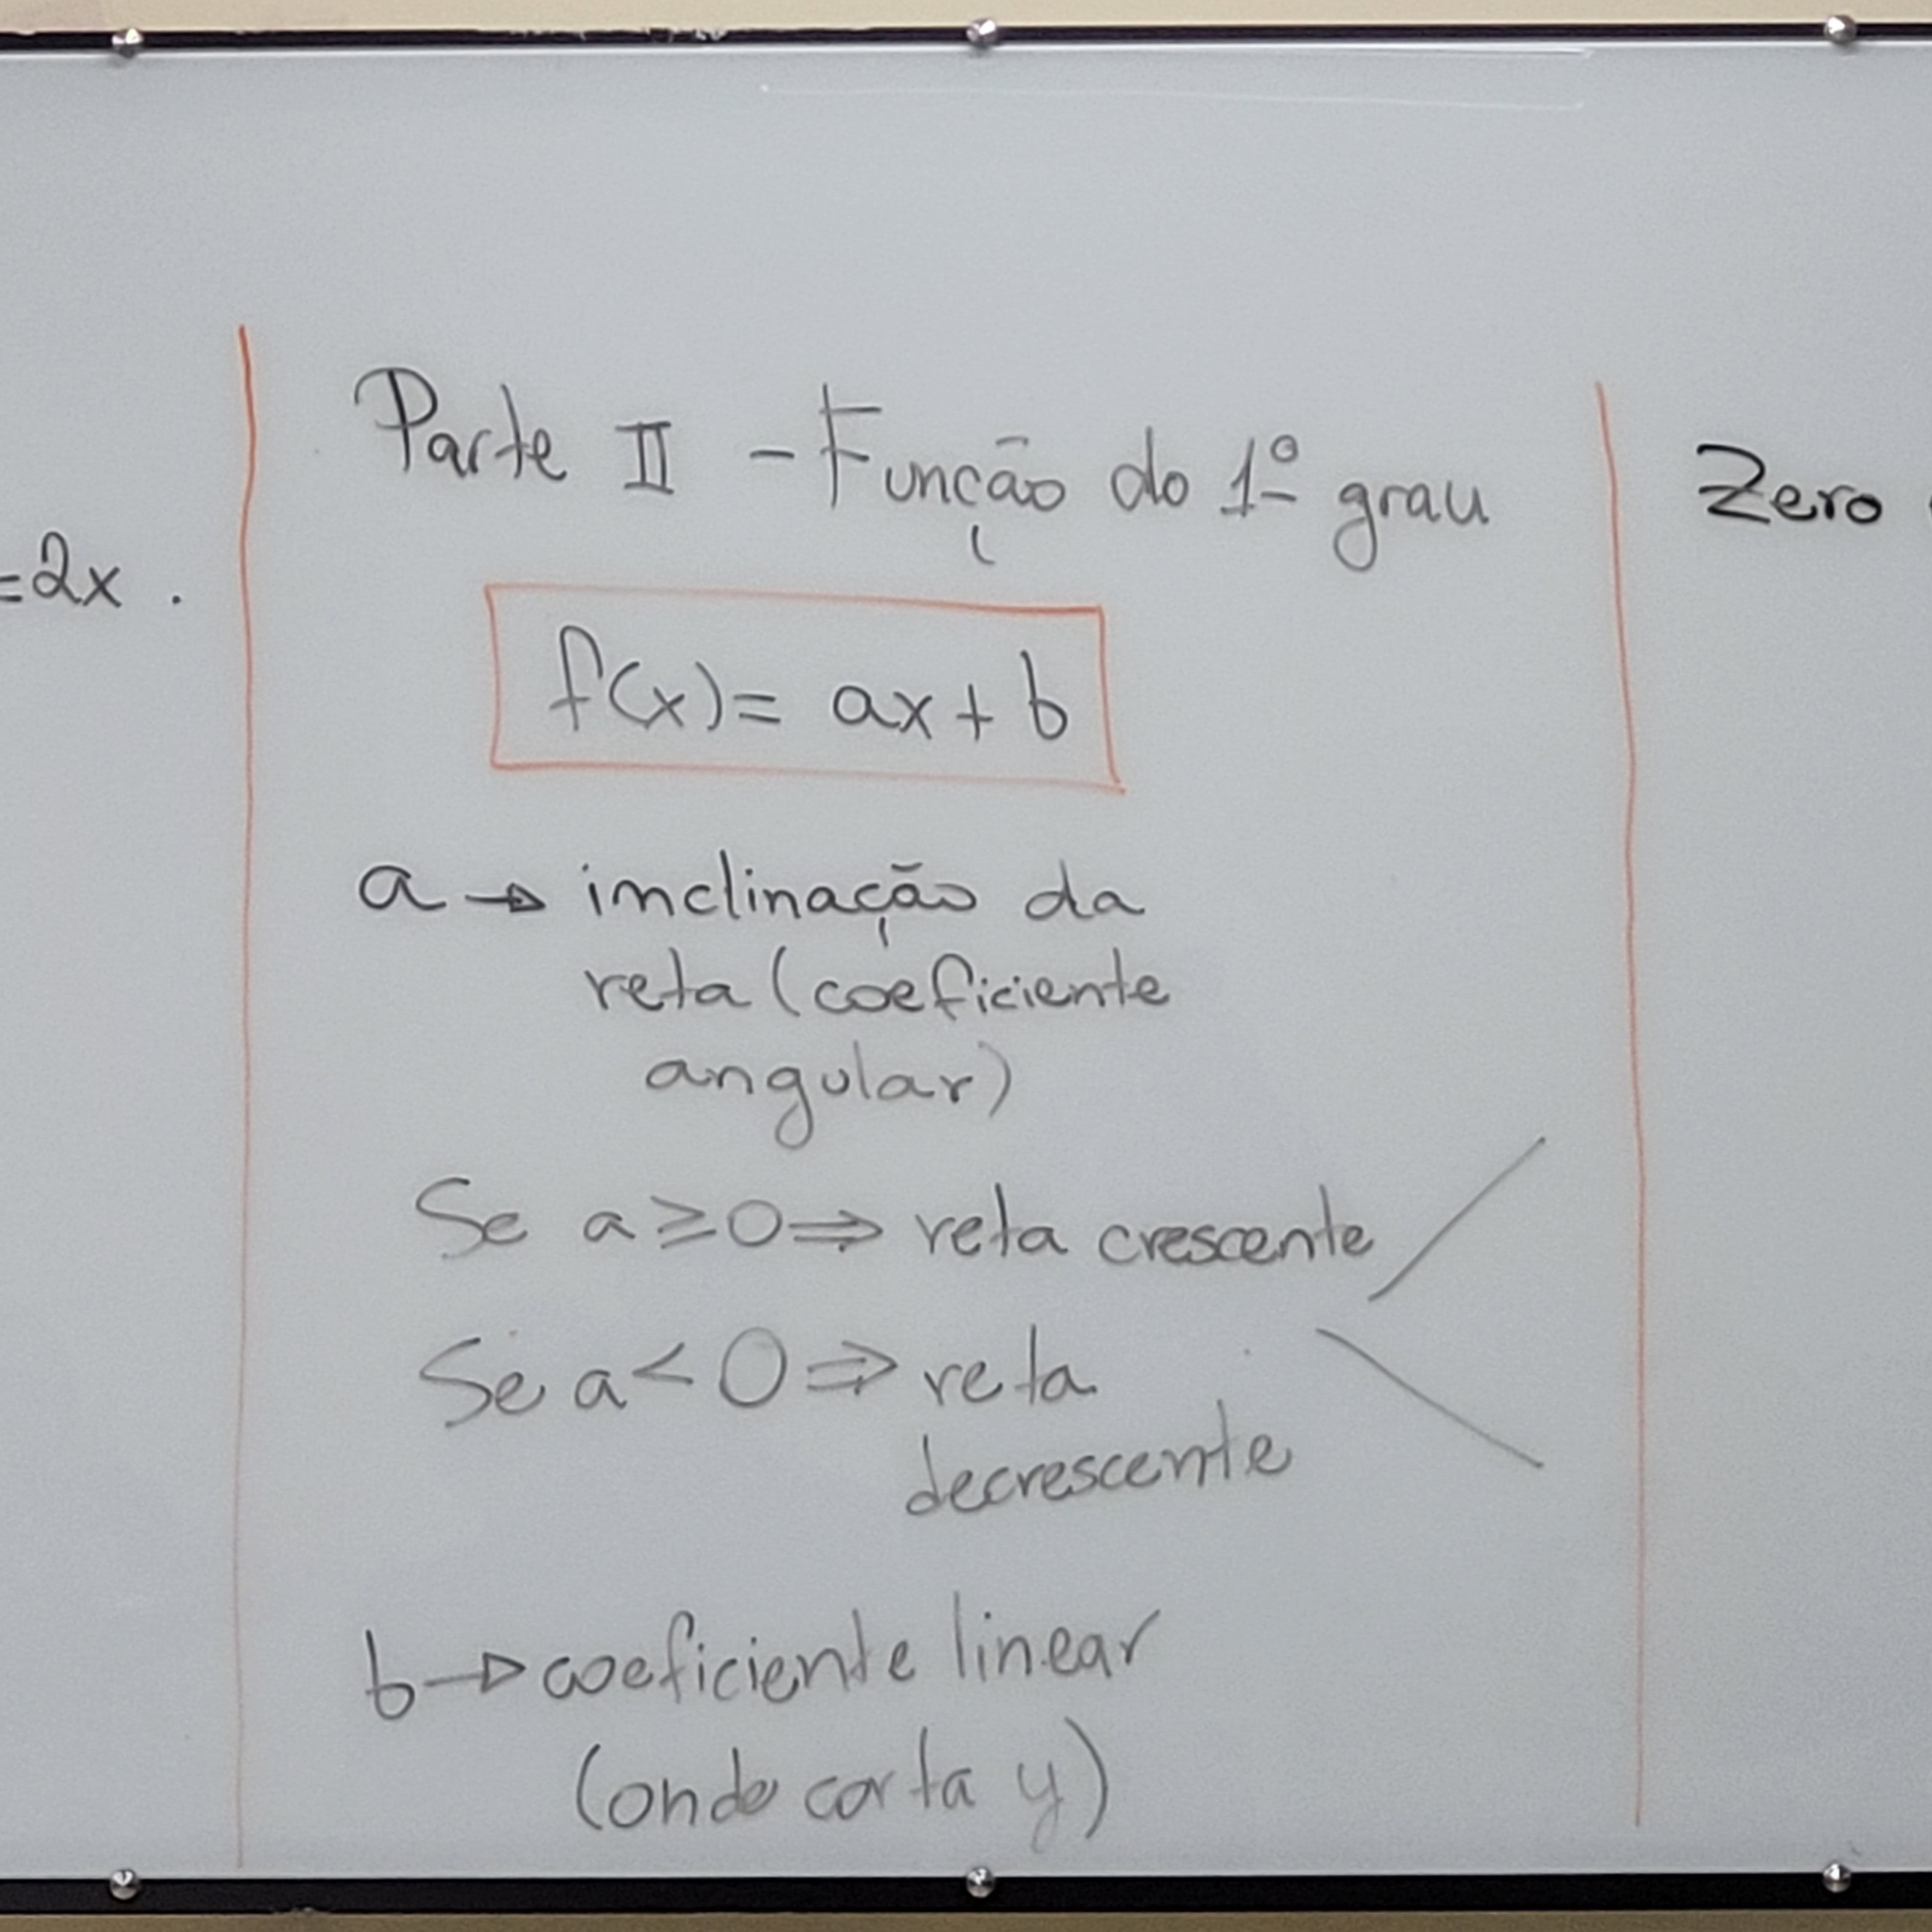 =2x .
Parte II - Função do 1º grau
f(x) = ax + b
a → inclinação da
reta (coeficiente
angular)
Se a ≥ 0 ⇒ reta crescente
Se a < 0 ⇒ reta
decrescente
b → coeficiente linear
(onde corta y)
Zero